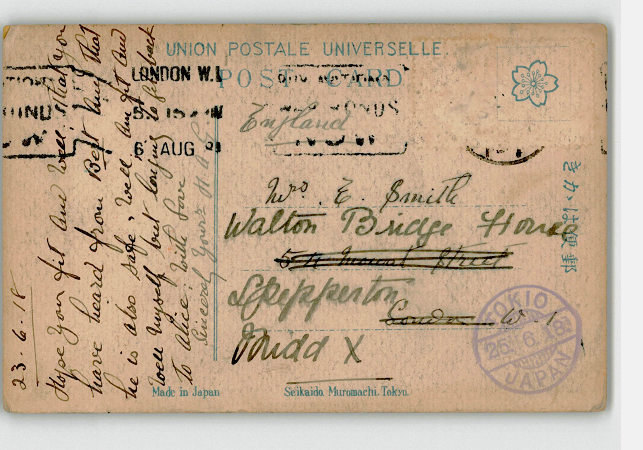 UNION POSTALE UNIVERSELLE
POST CARD
LONDON W.1
6 AUG
BONDS
NOW
England
Mrs E. Smith
Walton Bridge House
Street
Shepperton
London W-1
Midd X
きかは便郵
TOKIO
25.6.18
JAPAN
23-6-18
Hope you fit and well; that you
have heard from Bert and that
he is also safe & well. Am fit and
well myself but longing to be back
to Alice: with love
Sincerely Yours
Made in Japan
Seikaido, Muromachi, Tokyo.